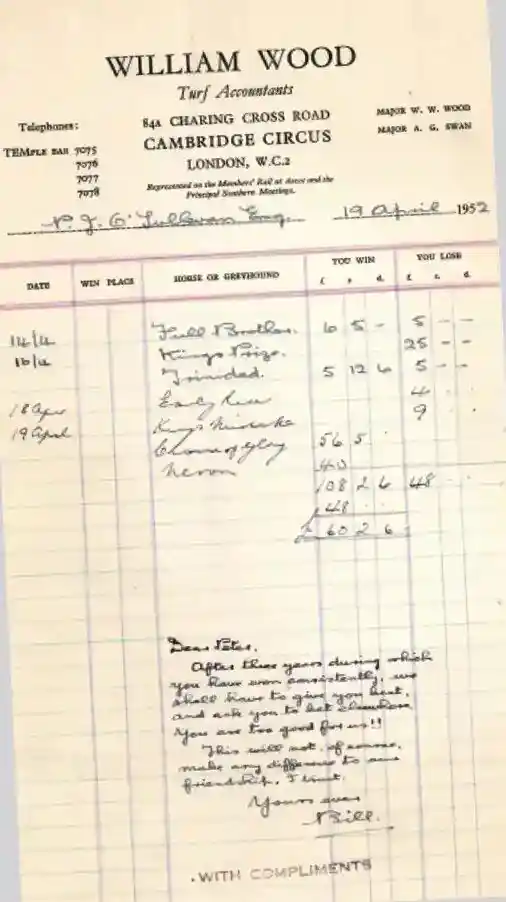 WILLIAM WOOD
Turf Accountants
84A CHARING CROSS ROAD
CAMBRIDGE CIRCUS
LONDON, W.C.2
Represented on the Members' Rail at Ascot and the
Principal Southern Meetings.
Telephones:
TEMPLE BAR 7075
7076
7077
7078
MAJOR W. W. WOOD
MAJOR A. G. SWAN
P. J. O'Sullevan Esq. 19 April 1952
DATE WIN PLACE HORSE OR GREYHOUND YOU WIN £ s. d. YOU LOSE £ s. d.
14/4 Full Brother. 6 5 - 5 - -
16/4 Kings Prize. 25 - -
Trinidad. 5 12 6 5 - -
18 Apr Early 4
19 April Kings 9
56 5
40
108 2 6 48
48
£ 60 2 6
Dear Peter,
After three years during which
you have won consistently, we
shall have to give you best,
and ask you to bet elsewhere
You are too good for us!!
This will not, of course,
make any difference to our
friendship, I trust.
Yours ever
Bill.
WITH COMPLIMENTS